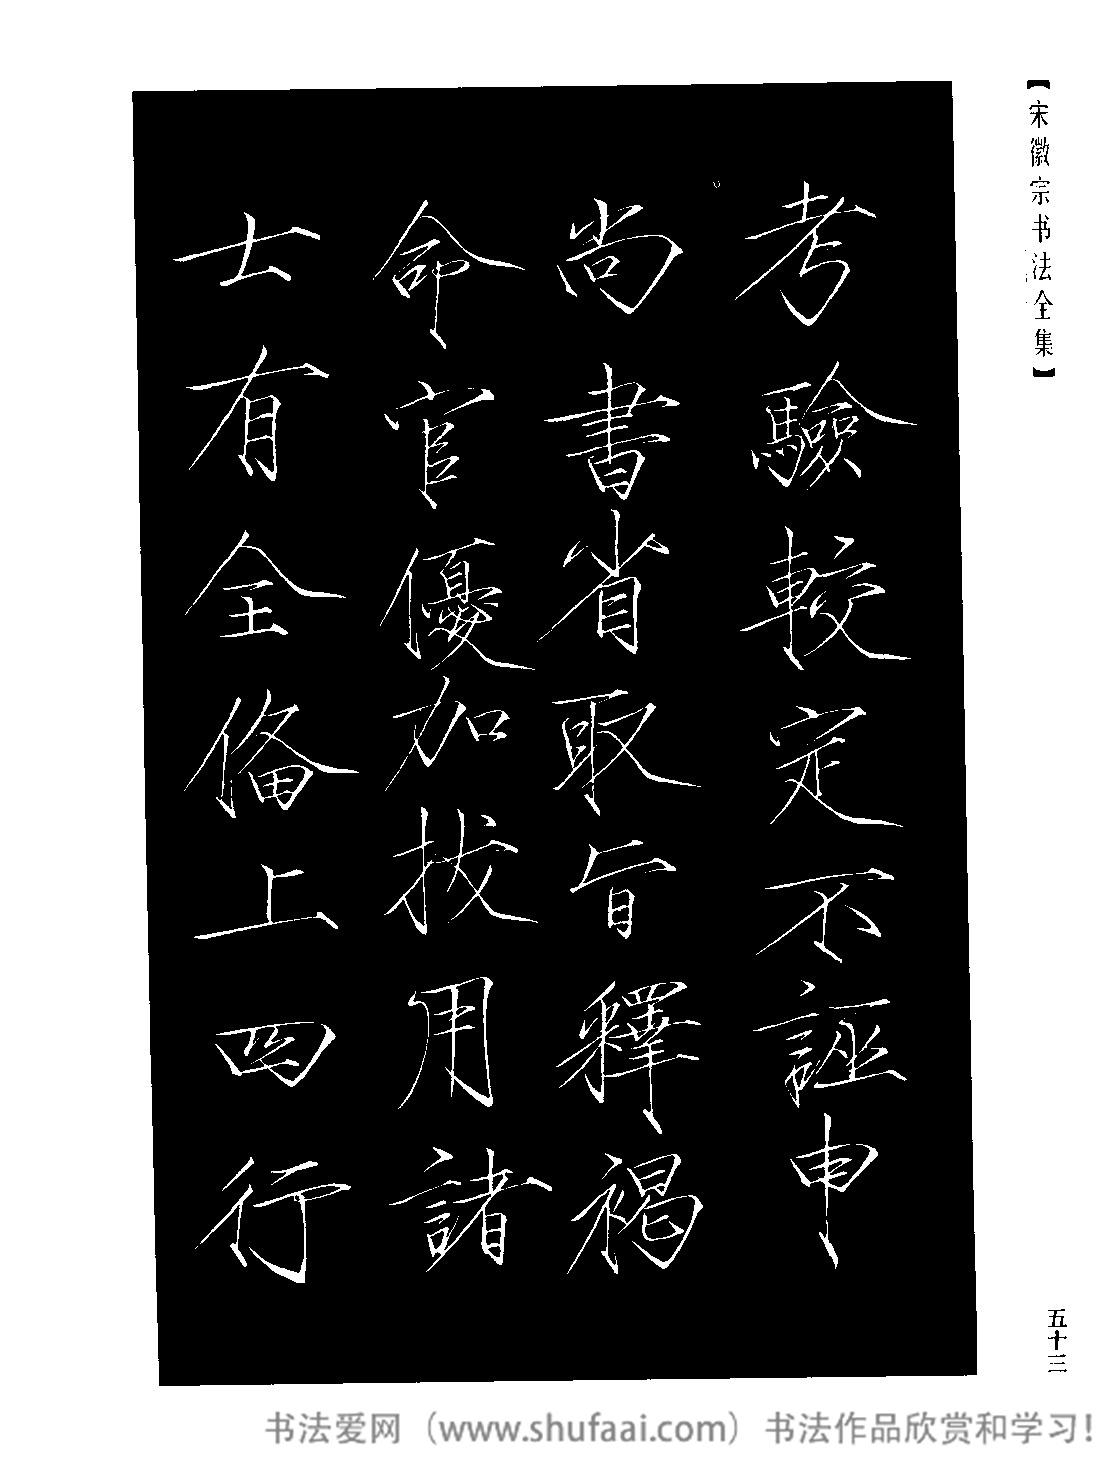 【宋徽宗书法全集】
考驗較定不誣申
尚書省取旨釋褐
命官優加拔用諸
士有全俻上四行
五十三
书法爱网（www.shufaai.com）书法作品欣赏和学习！